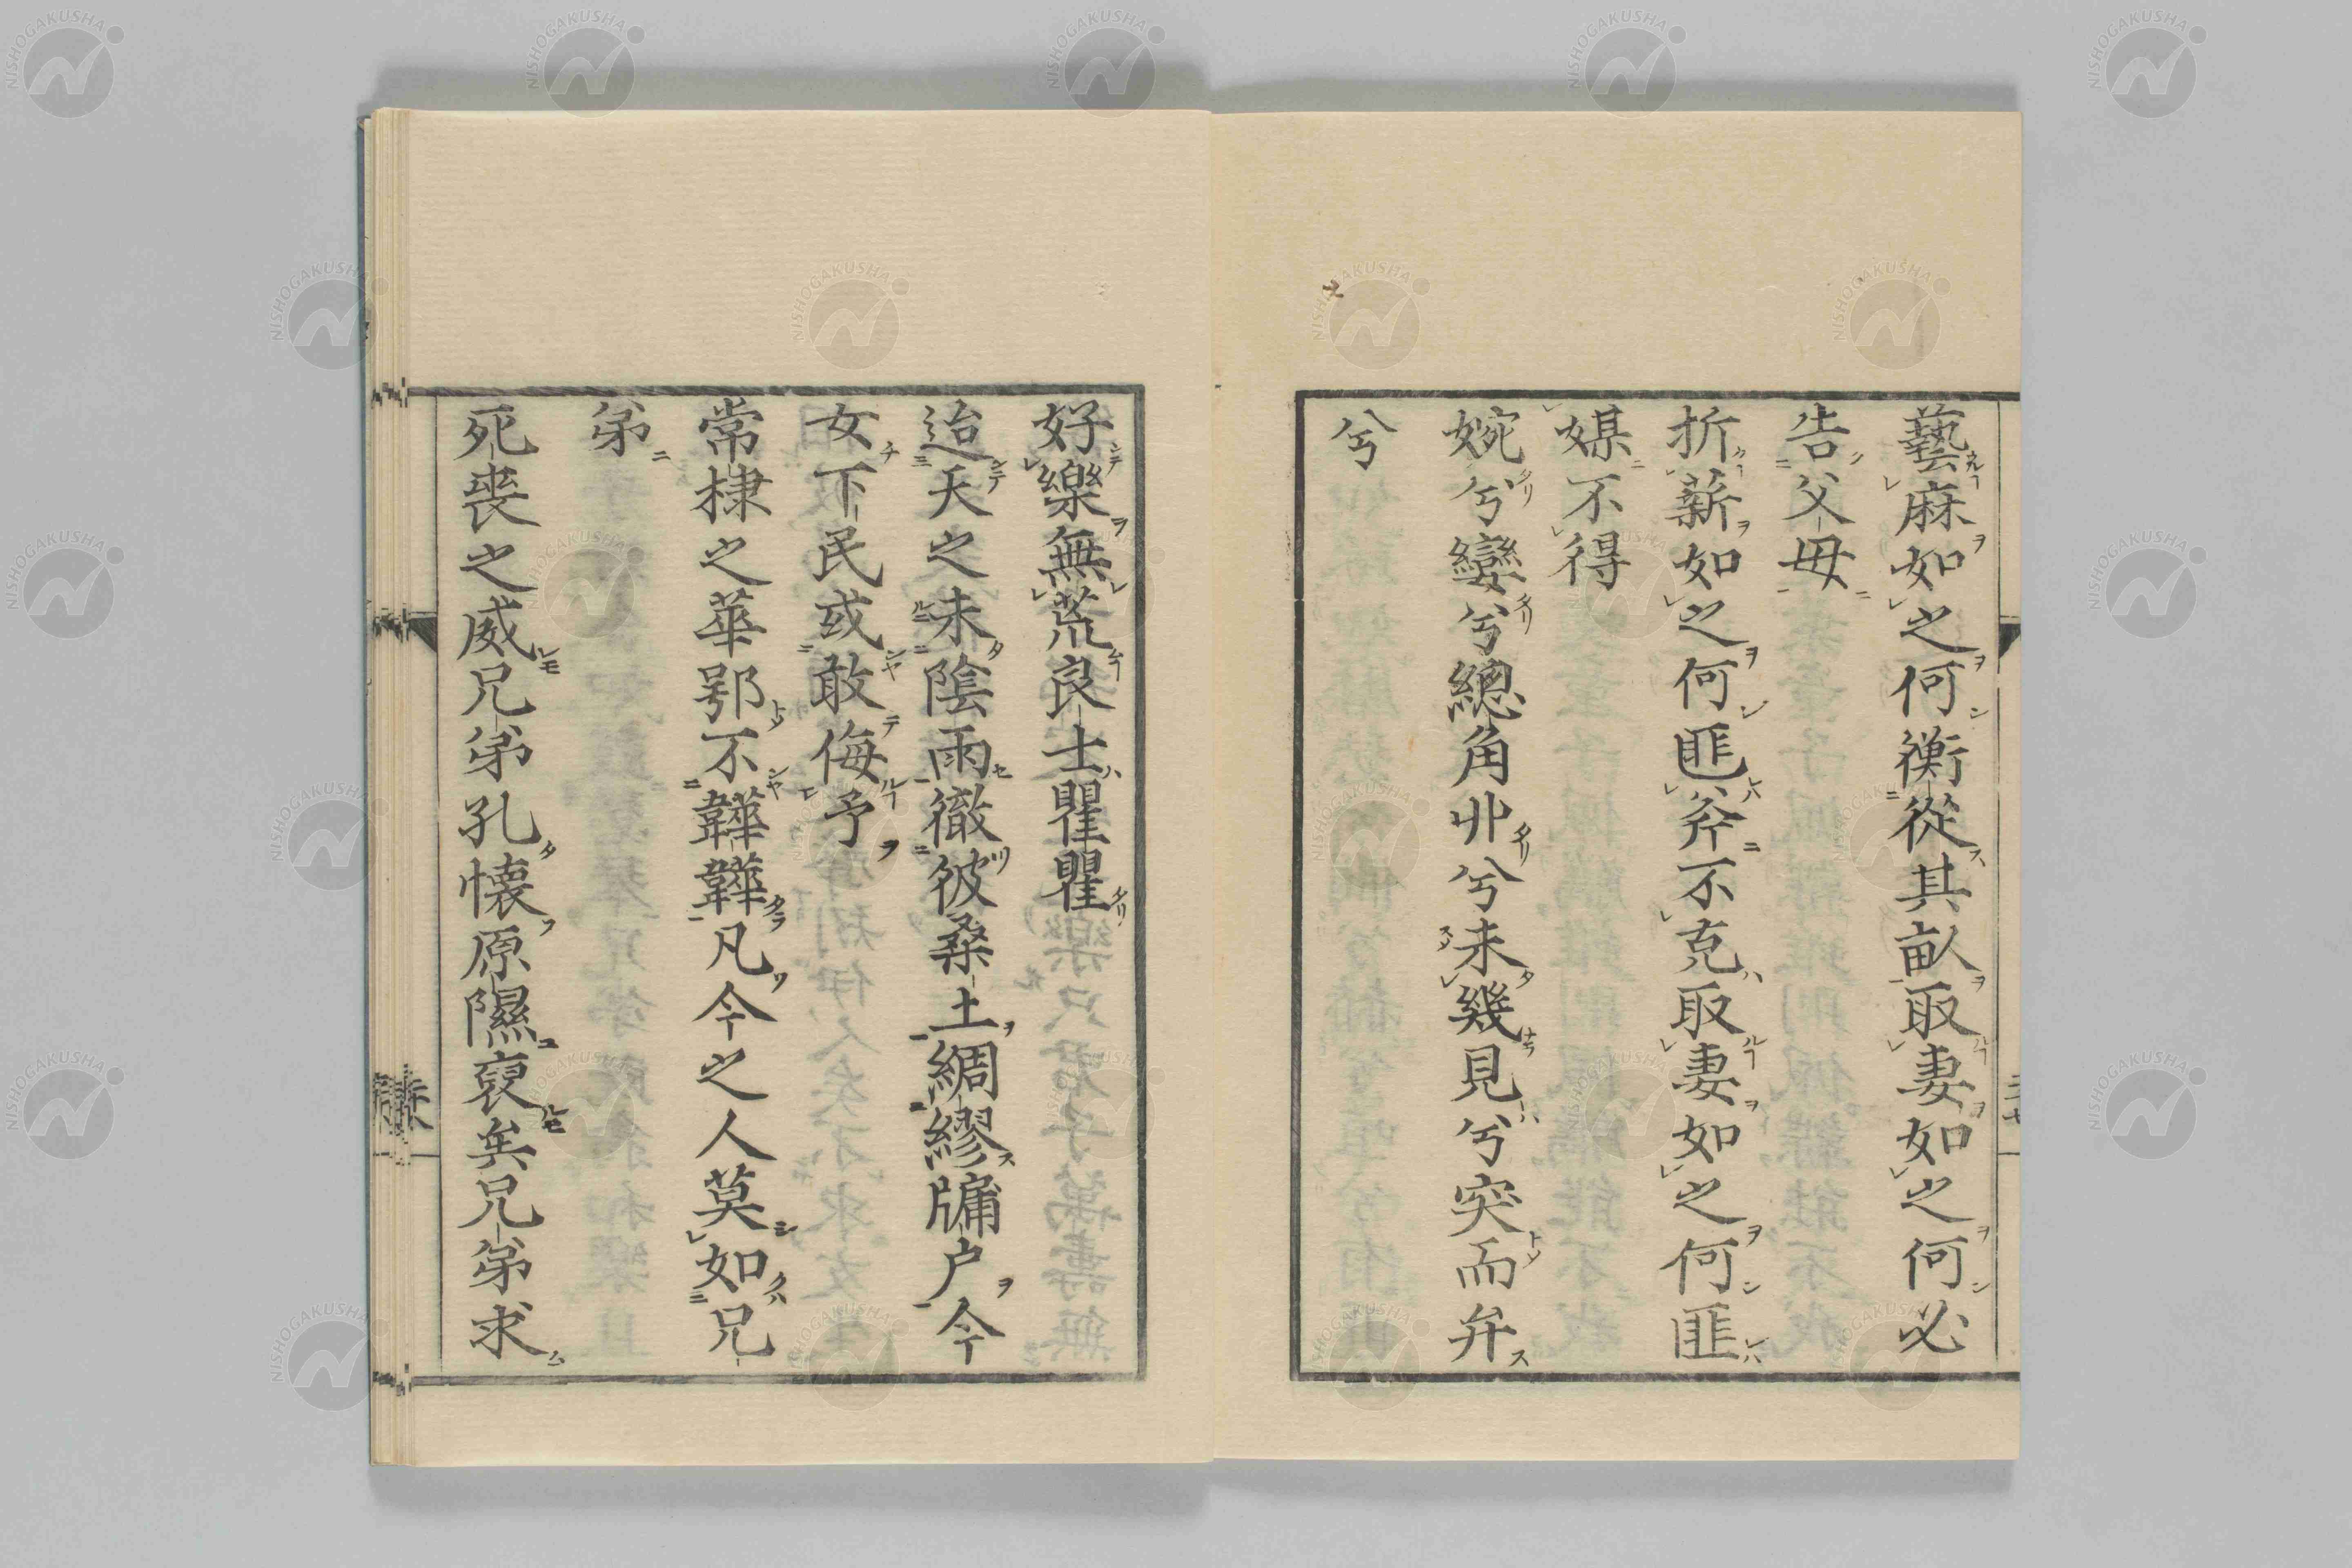 藝麻如之何衡從其畝取妻如之何必
告父母
折薪如之何匪斧不克取妻如之何匪
媒不得
婉兮孌兮總角丱兮未幾見兮突而弁
兮
好樂無荒良士瞿瞿
迨天之未陰雨徹彼桑土綢繆牖户今
女下民或敢侮予
常棣之華鄂不韡韡凡今之人莫如兄
弟
死喪之威兄弟孔懷原隰裒矣兄弟求
NISHOGAKUSHA